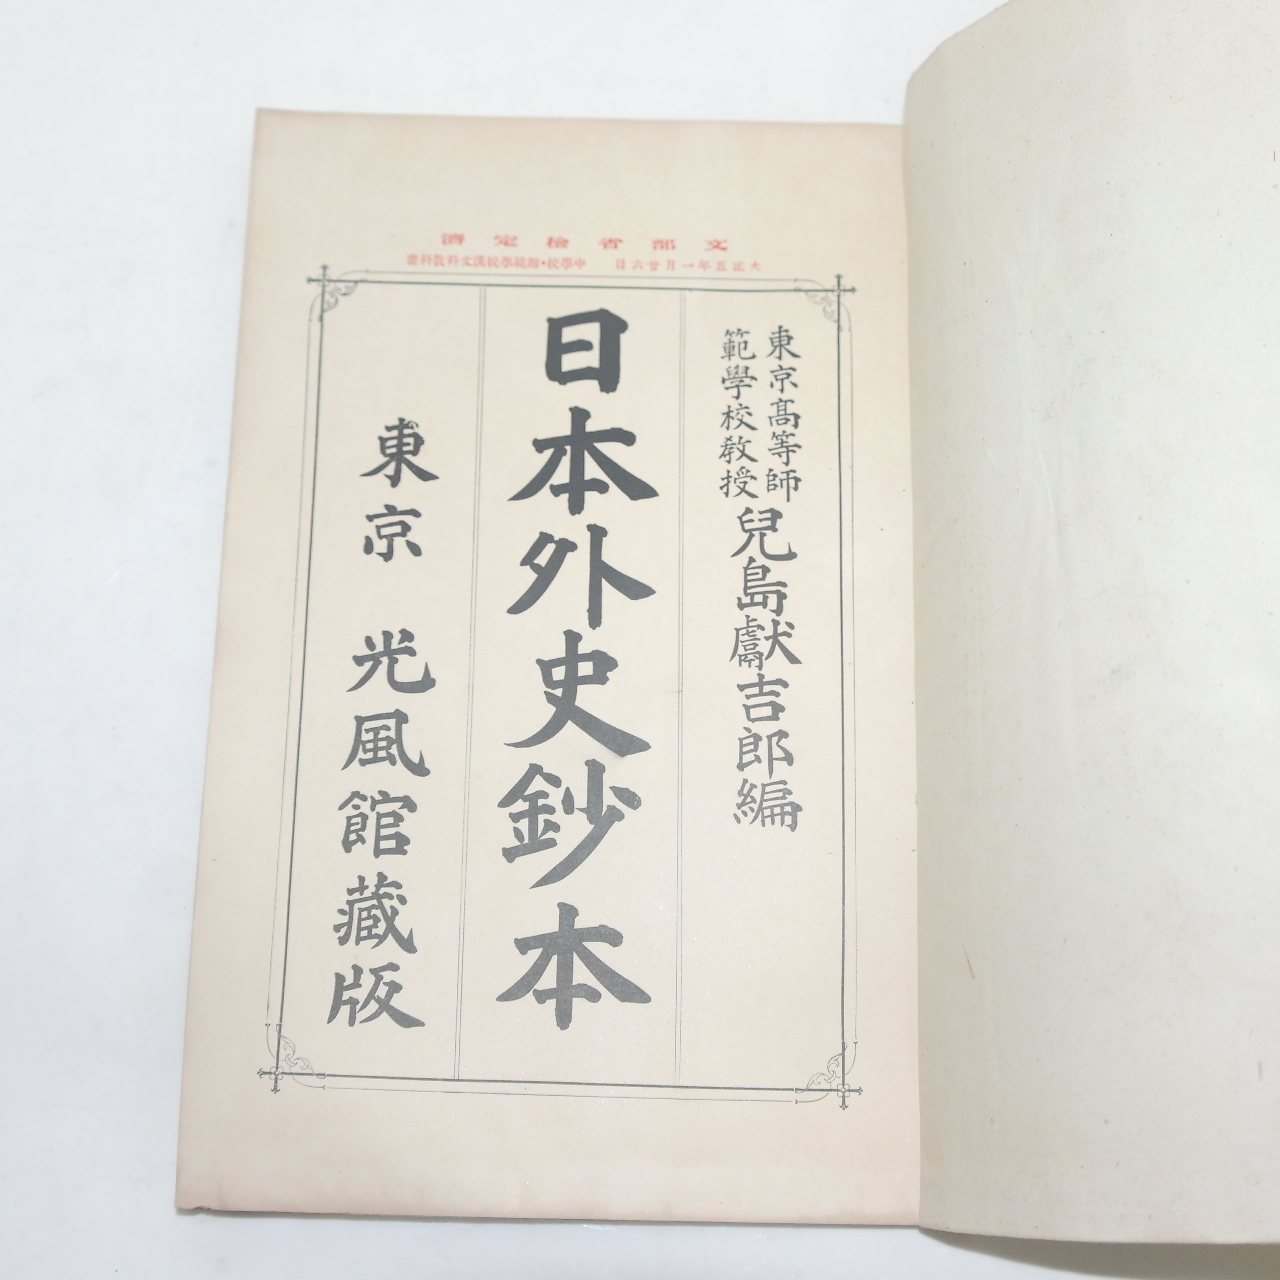 文部省檢定濟
大正五年一月廿六日 中學校・師範學校漢文科敎科書
東京高等師
範學校敎授
兒島獻吉郎編
日本外史鈔本
東京 光風館藏版